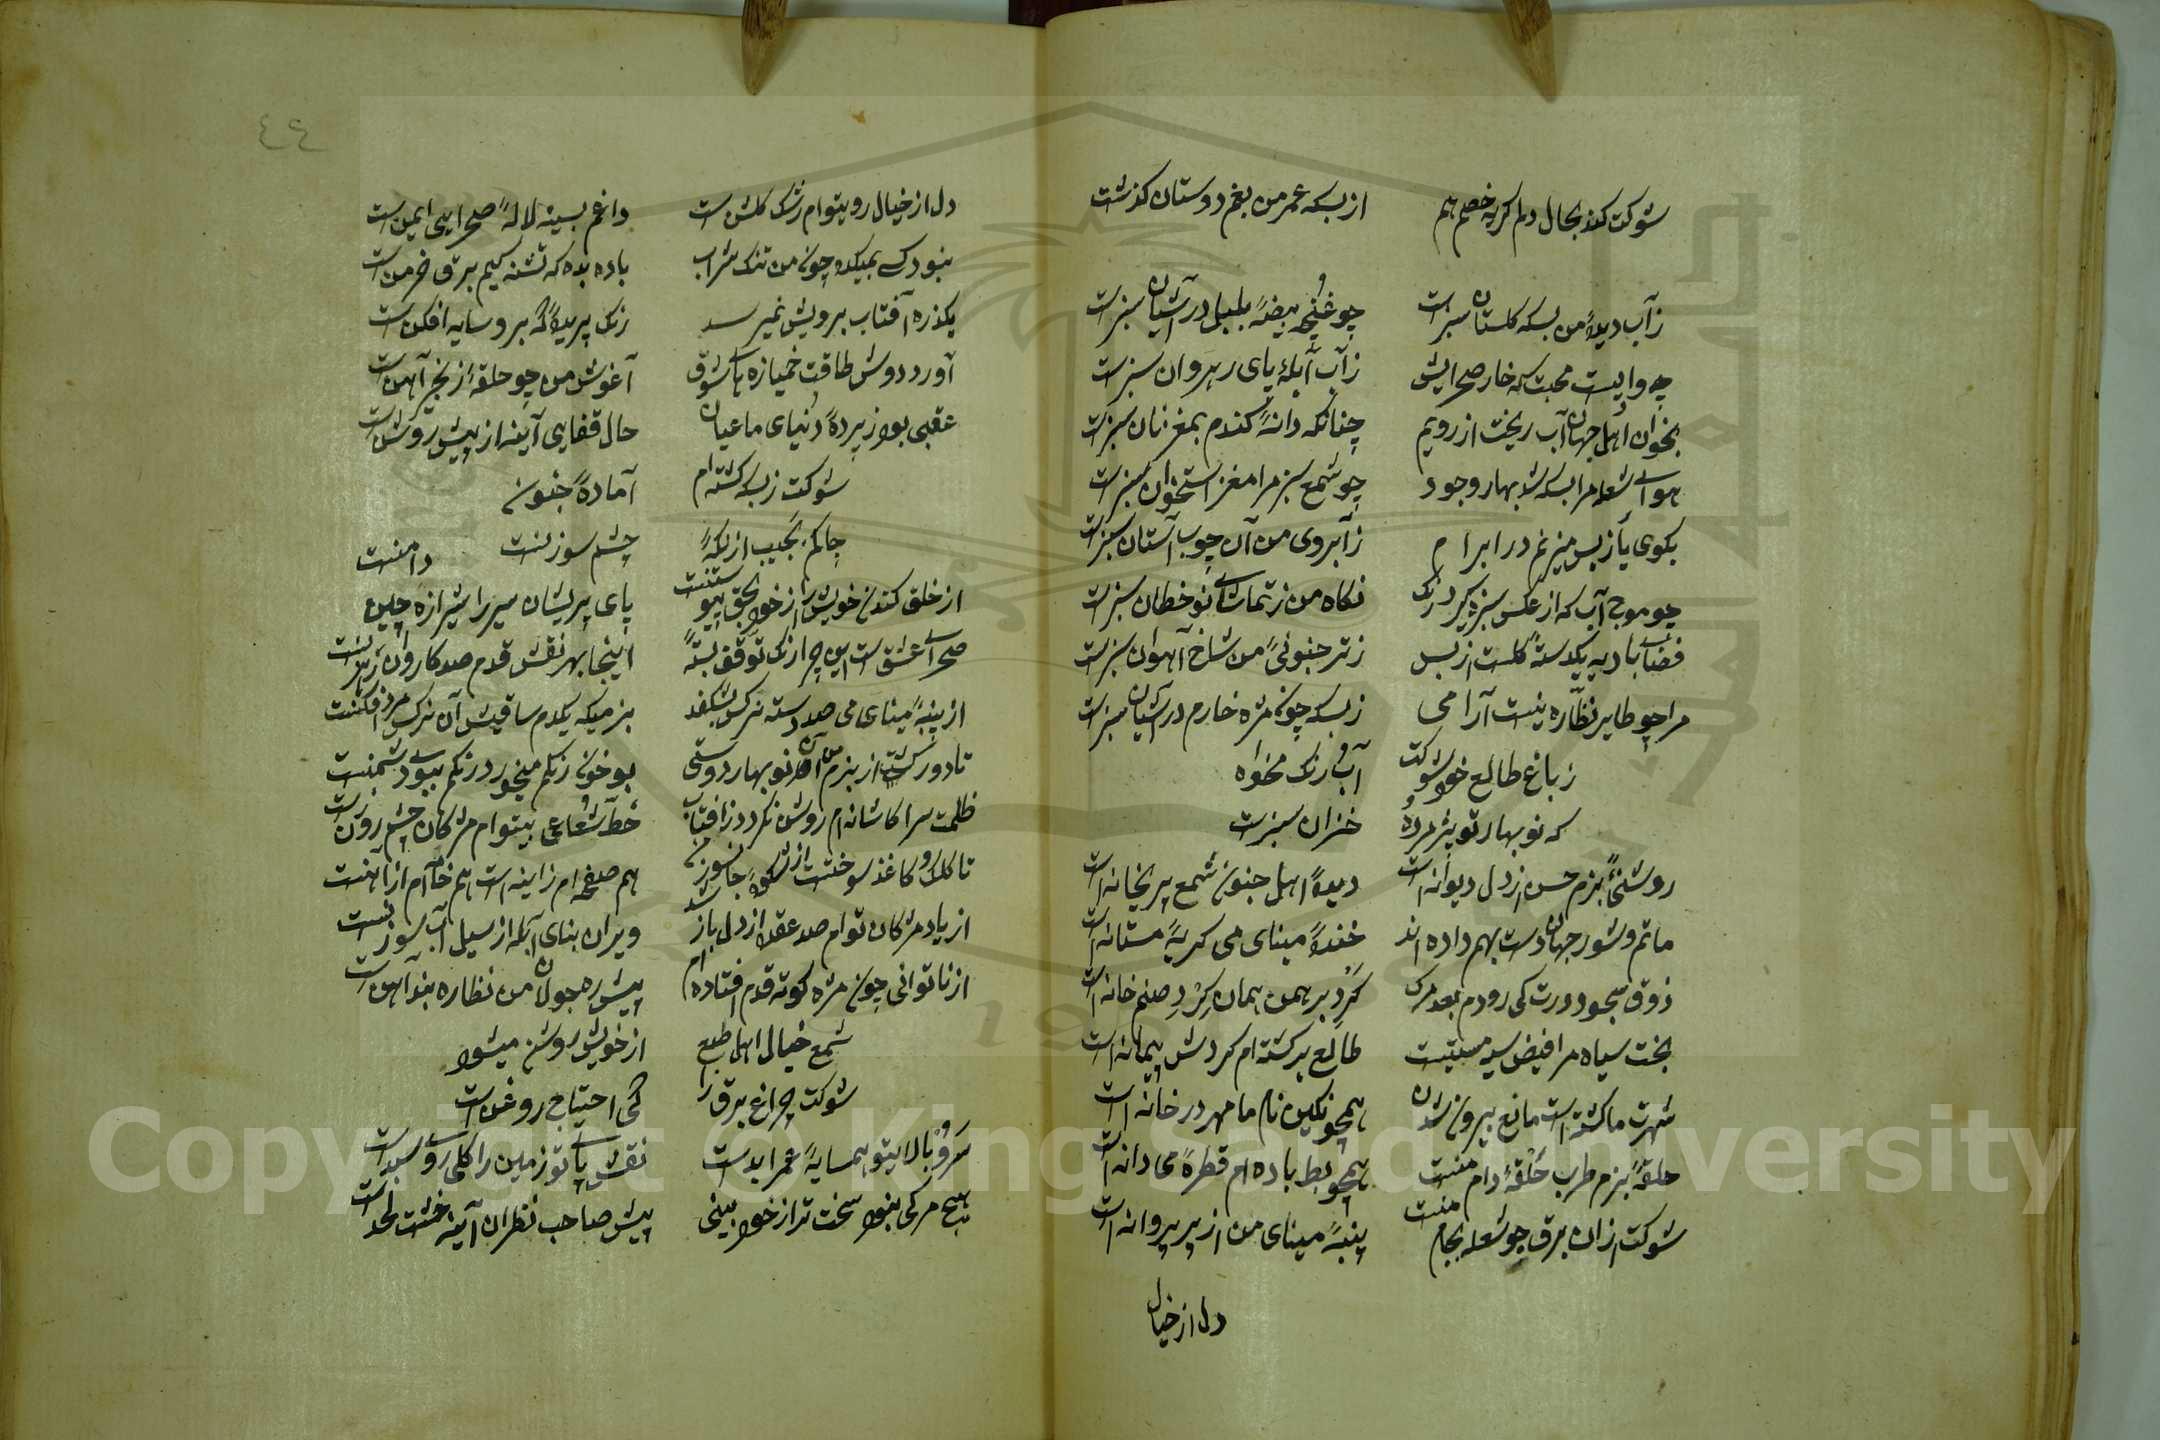 شوکت کند بحال دلم کریه خصم هم
از بسکه عمر من بغم دوستان کذشت
ز آب دیدهٔ من بسکه کلستان سبزست
چو غنچه بیضهٔ بلبل در آشیان سبزست
چه وادیست محبت که خار صحرایش
ز آب آبلهٔ پای رهروان سبزست
بخوان اهل جهان آب ریخت از رویم
چنانکه دانهٔ کندم بمغز نان سبزست
هوای شعله مرا بسکه شد بهار وجود
چو شمع سبز مرا مغز استخوان سبزست
بکوی یأز بس میزنم در ابرام
ز آبروی من آن چوب آستان سبزست
چو موج آب که از عکس سبزه کیرد رنک
نکاه من ز تماشای نوخطان سبزست
فضای بادیه یکدسته کلست از بس
ز تر جنونئ من شاخ آهوان سبزست
مرا چو طایر نظاره نیست آرامی
ز بسکه چون مژه خارم در آشیان سبزست
ز باغ طالع خود شوکت
آب و رنک مخواه
که نوبهار تو پژمرده
خزان سبزست
روشنئ بزم حسن از دل دیوانه است
دیدهٔ اهل جنون شمع پریخانه است
ماتم و شور جهان دست بهم داده اند
خندهٔ مینای می کریهٔ مستانه است
ذوق سجود درت کی رودم بعد مرک
کرد برهمن همان کرد صنم خانه است
بخت سیاه مرا فیض سیه مستیست
طالع برکشته ام کردش پیمانه است
شهرت ما کشته است مانع بیرون شدن
همچو نکین نام ما مهر در خانه است
حلقهٔ بزم طرب حلقهٔ دام منست
همچو بط باده ام قطرهٔ می دانه است
شوکت از ان برق چو شعله بجام منست
پنبهٔ مینای من از پر پروانه است
دل از خیال
٤٤
دل از خیال روی توام رشک کلشن است
داغم بسینه لالهٔ صحرای ایمن است
نبود کسی بمیکده چون من تنک شراب
باده بده که تشنه کیم برق خرمن است
یکذره آفتاب برویش نمیرسد
رنک پریدهٔ که برو سایه افکن است
آورد دوش طاقت خمیازه های شوق
آغوش من چو حلقهٔ زنجیر آهن است
عقبی بود ز پردهٔ دنیای ما عیان
حال قفای آینه از پیش روشن است
شوکت ز بسکه کشته ام
آمادهٔ جنون
چاکم بجیب از نکهٔ
چشم سوزنست
از خلق کندن خویش را از خود بحق پیوستنست
پای پریشان سیر را شیرازهٔ چین دامنست
صحرای عشق است این چرا رنک توقف بستهٔ
اینجا بهر نقش قدم صد کاروان رهزنست
از پنبهٔ مینای می صد دسته نرکس بشکفد
بزمیکه یکدم ساقیش آن نرکس مرد افکنست
تا دور کشت از بزم من آن نوبهار دوستی
بو خون رنکم میخورد رنکم ببوی دشمنست
ظلمت سرا کاشانه ام روشن نکردد ز افتاب
خط شعاعی بیتوام مژکان چشم روزنست
تا کلک و کاغذ سوختست از شکوهٔ جانسوز من
هم صفحه ام ز آینه است هم خامه ام از آهنست
از یاد مژکان توام صد عقده از دل باز شد
ویران بنای آبله از سیل آب سوزنست
از ناتوانی چون مژه کوته قدم افتاده ام
پیش ره جولان من نظاره بند آهنست
شمع خیال اهل طبع
از خویش روشن میشود
شوکت چراغ برق را
کی احتیاج روغن است
سرو بالای تو همسایهٔ عمر ابدست
نقش پای تو زمین را کل روی سبدست
هیچ مرکی نبود سخت تر از خود بینی
پیش صاحب نظران آینه خشت لحدست
Copyright © King Saud University